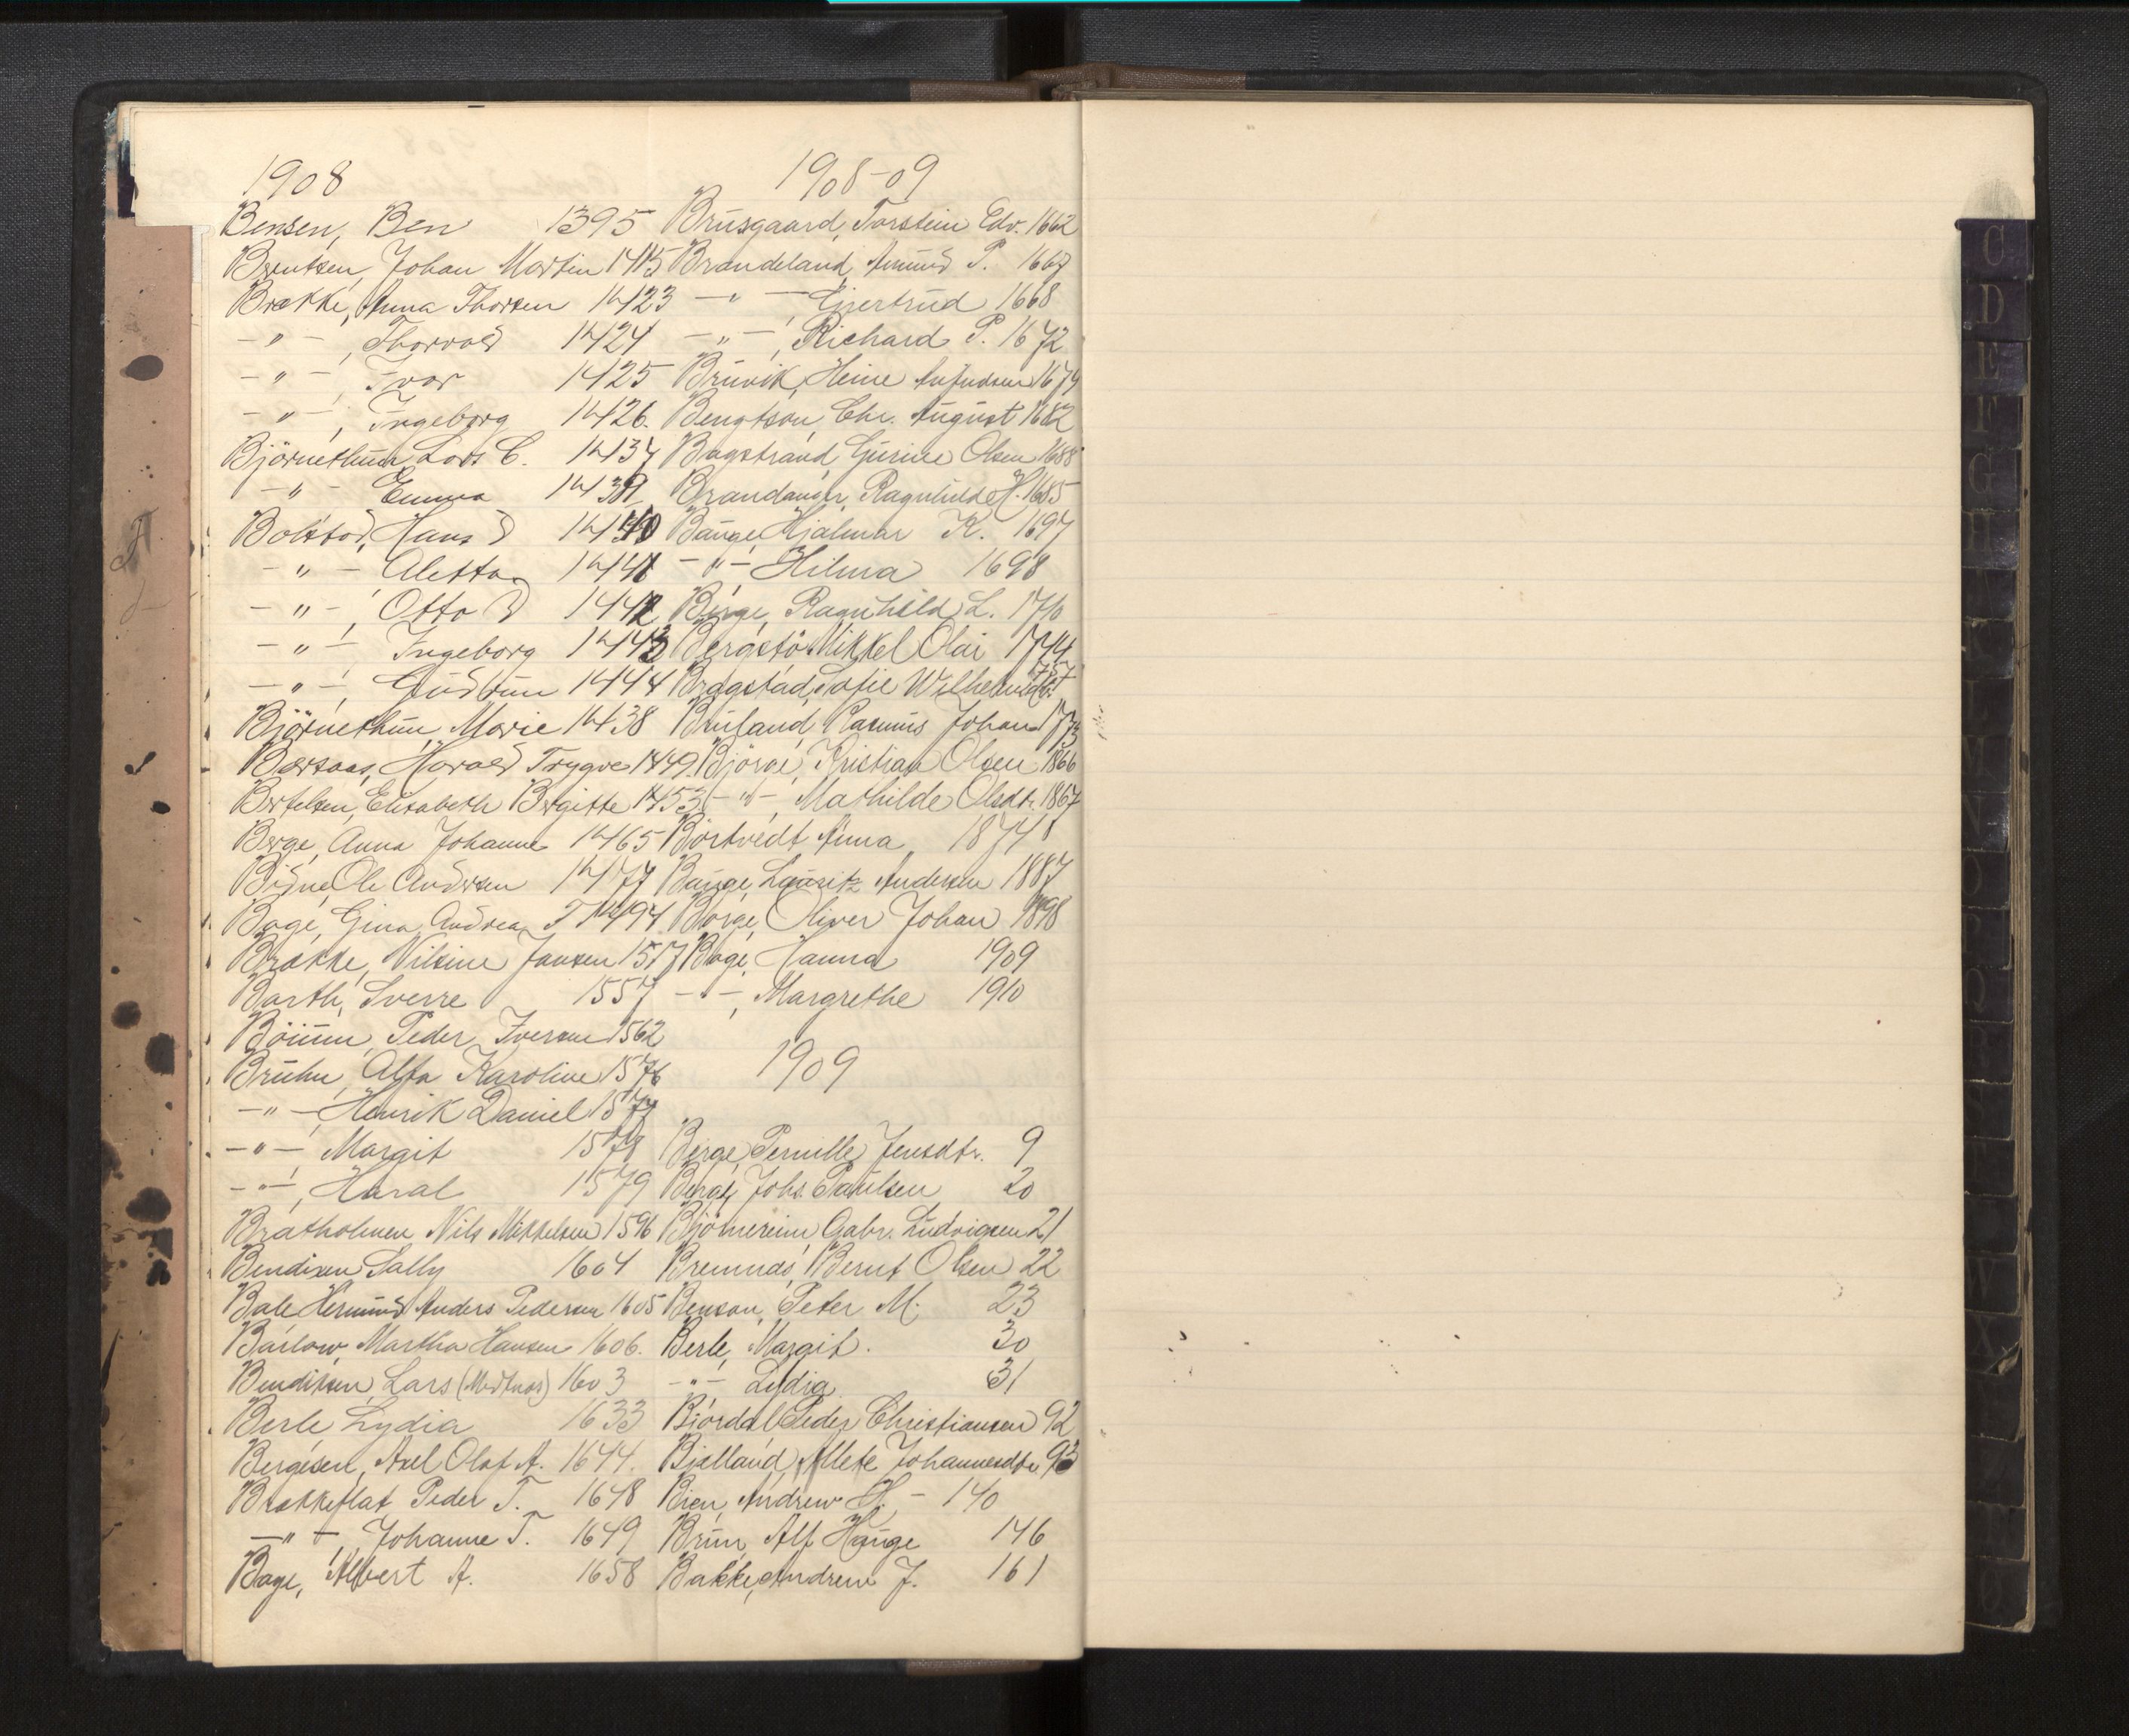 1908
Bensen, Ben 1395
Berntsen, Johan Martin 1415
Brække, Anna Thorsen 1423
-"-, Thorvald 1424
-"-, Ivar 1425
-"-, Ingeborg 1426.
Björnethun, Lars C. 1437
-"- Emma
Bolstad, Hans d 1440
-"- Aletta 1441
-"-, Otto d 1442
-"-, Ingeborg 1443
-"-, Gudrun 1444
Björnethun, Marie 1438
Harald Trygve 1449.
Bertelsen, Elisabeth Birgitte 1453
Berge, Anna Johanne 1465
Bidne, Ole Andersen 1477
Bage, Gina Andrea T 1494
Brække, Nilsine Jansen 1517
Barth, Sverre 1557
Böium, Peder Iversen 1562
Bruhn, Alfa Karoline 1576
-"-, Henrik Daniel 1577
-"-, Margit 1578
-"-, Haral 1579
Bratholmen Nils Mikkelsen 1596
Bendixen Sally 1604
Bale Hermund Anders Pedersen 1605
Barlow, Martha Hansen 1606.
Bendiksen, Lars 1603
Berle Lydia 1633
Bergesen, Axel Olaf A. 1644.
Brækkeflat Peder T. 1648
-"-, Johanne T. 1649
Bage, Albert A. 1658
1908-09
Brusgaard, Torstein Edv. 1662
Brandeland, Amund P. 1667
-"-, Gjertrud 1668
-"-, Richard P. 1672
Bruvik, Heine 1679
Bengtson, Chr. August 1682
Bugstrand, Gurine Olsen 1688
Brandanger, Ragnhilde H. 1685
Bauge, Hjalmar K. 1697
-"-, Hilma 1698
Berge, Ragnhild L. 1710
Bergstö Mikkel Olai 1744
Bragstad, Sofie 1757
Bruland, Rasmus Johan 1773
Björge, Kristian Olsen 1866
-"-, Mathilde Olsdtr. 1867
Börtvedt Anna 1874
Bauge, Lauritz Andersen 1887
Börge, Oliver Johan 1898
Bøge, Hanna 1909
-"-, Margrethe 1910
1909
Berge, Pernille Jensdtr. 9
Berge, Johs. Paulsen 20
Björnereim Gabr. Ludvigsen 21
Bremnes, Bernt Olsen 22
Benson, Peter M. 23
Berle, Margit. 30
-"- Lydia 31
Björdal Peder Christiansen 92
Bjelland, Allete Johannesdtr. 93
Bien, Andrew H. - 140
Brun, Alf Hauge 146
Bakke, Andrew J. 161
C
D
E
F
G
H